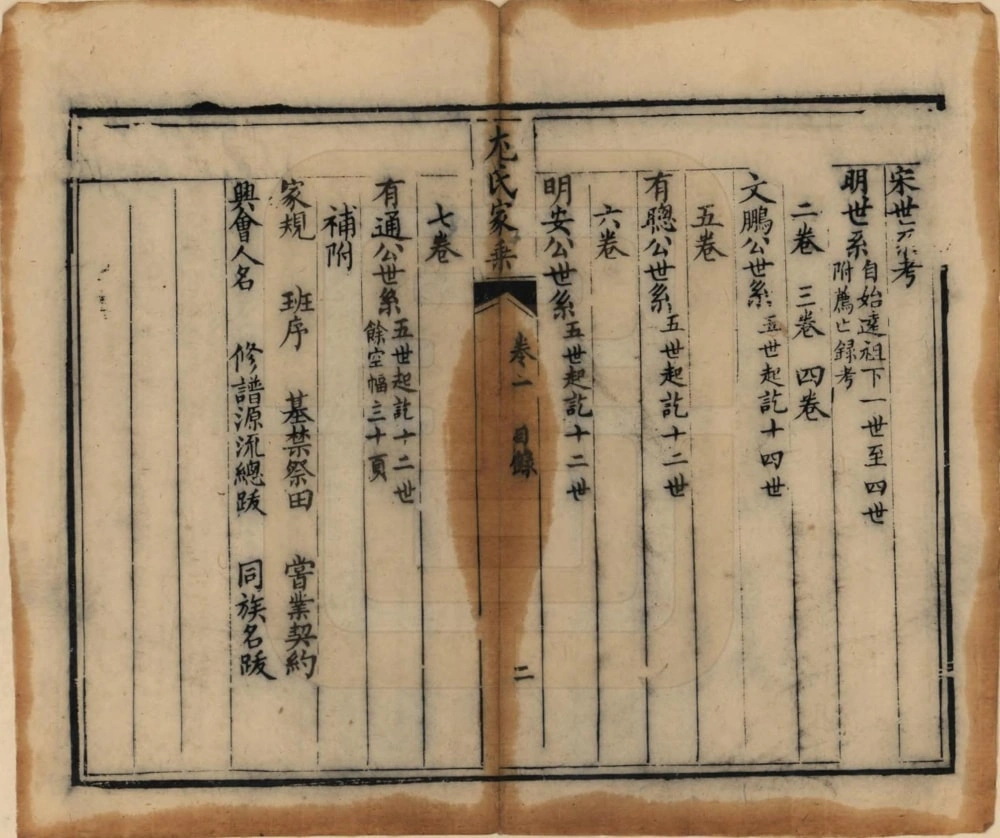 宋世系考
明世系 自始遠祖下一世至四世
附薦亡録考
二卷 三卷 四卷
文鵬公世系 五世起訖十四世
五卷
有聰公世系 五世起訖十二世
六卷
明安公世系 五世起訖十二世
氏家乗
卷一 目錄
二
七卷
有通公世系 五世起訖十二世
餘空幅三十頁
補附
家規 班序 基禁祭田 嘗業契約
與會人名 修譜源流總跋 同族名跋